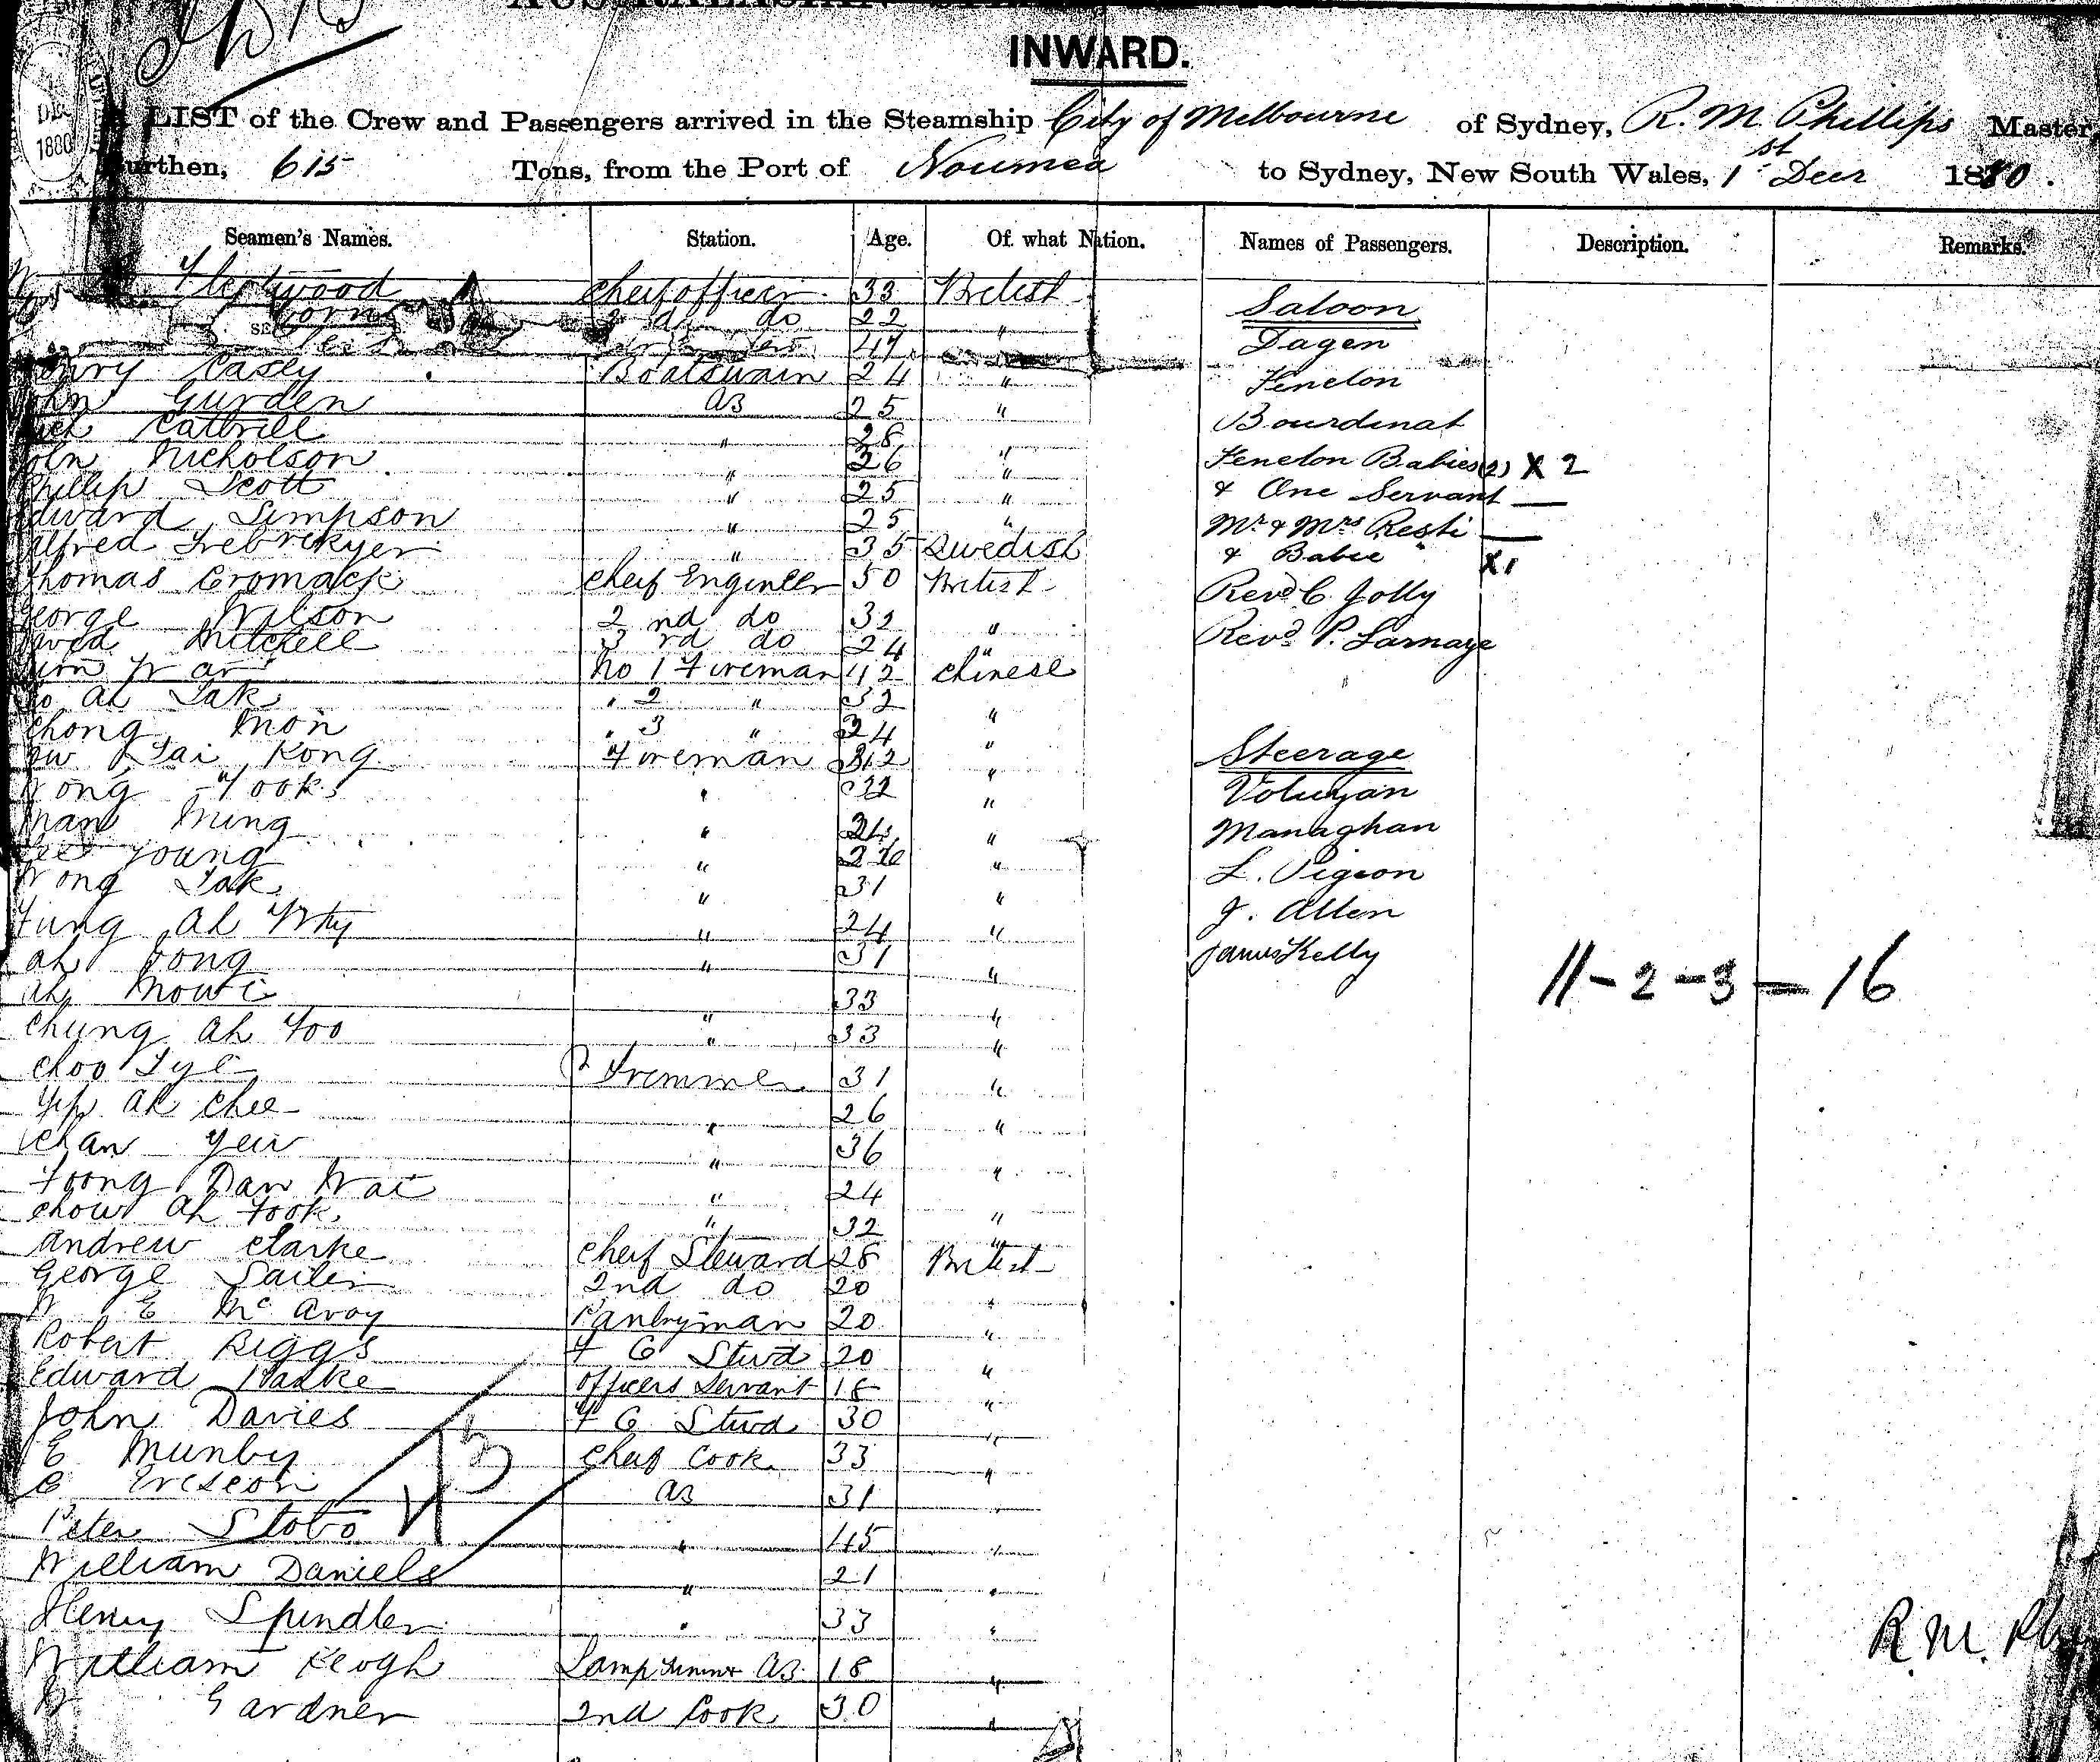 INWARD.
LIST of the Crew and Passengers arrived in the Steamship City of Melbourne of Sydney, R. M. Phillips Master,
Burthen, 615 Tons, from the Port of Noumea to Sydney, New South Wales, 1st Decr 1880.
Seamen's Names. Station. Age. Of what Nation. Names of Passengers. Description. Remarks.
Fleetwood Cheif officer 33 British
2nd do 22 "
47
Henry Casey Boatswain 24 "
John Gurden AB 25 "
Cattrill " 28 "
John Nicholson " 26 "
Phillip Scott " 25 "
Edward Simpson " 25 "
Alfred 35 Swedish
Thomas Cromack Cheif Engineer 50 British
George Wilson 2nd do 32 "
David Mitchell 3rd do 24 "
No 1 Fireman 42 Chinese
Ah Tak " 2 " 32 "
Chong Mon " 3 " 24 "
Tai Kong Fireman 32 "
Wong Fook " 32 "
Man Ming " 24 "
Lee Young " "
Wong Tak " 31 "
Fung Ah " 24 "
Ah Fong " 31 "
Ah Mowi 33
Chung Ah Foo " 33 "
Choo Tye Trimmer 31 "
Yip Ah Chee " 26 "
Chan Yew " 36 "
Foong Dan Wai " 24 "
Chow Ah Fook " 32 "
Andrew Clarke Cheif Steward 28 British
George 2nd do 20 "
W E McAvoy Pantryman 20 "
Robert Biggs F C Stwd 20 "
Edward Officers Servant 18 "
John Davies F C Stwd 30 "
E Munby Cheif Cook 33 "
C Ericson AB 31 "
Peter Stobo " 45 "
William Daniels " 21 "
Henry Spindler " 33 "
William Keogh Lamp trimmer AB 18 "
W Gardner 2nd Cook 30 "
Saloon
Dagen
Fenelon
Bourdinat
Fenelon Babies (2) X 2
& One Servant —
Mr & Mrs Resti —
& Babie X1
Revd C. Jolly
Revd P. Larnaye
Steerage
Managhan
L. Pigeon
J. Allen
James Kelly
11 - 2 - 3 — 16
R. M.